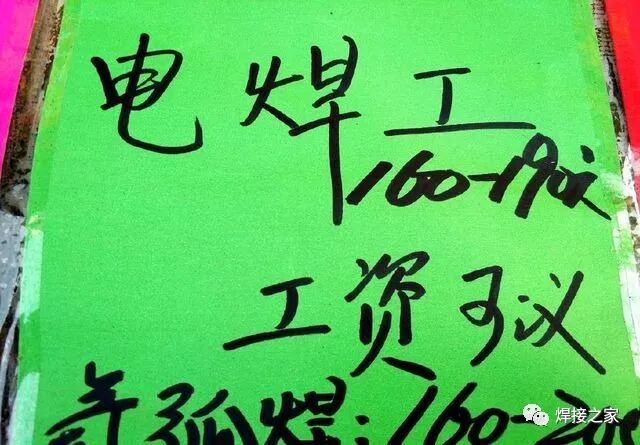 电焊工
160-190元
工资可议
氩弧焊:160-2
焊接之家